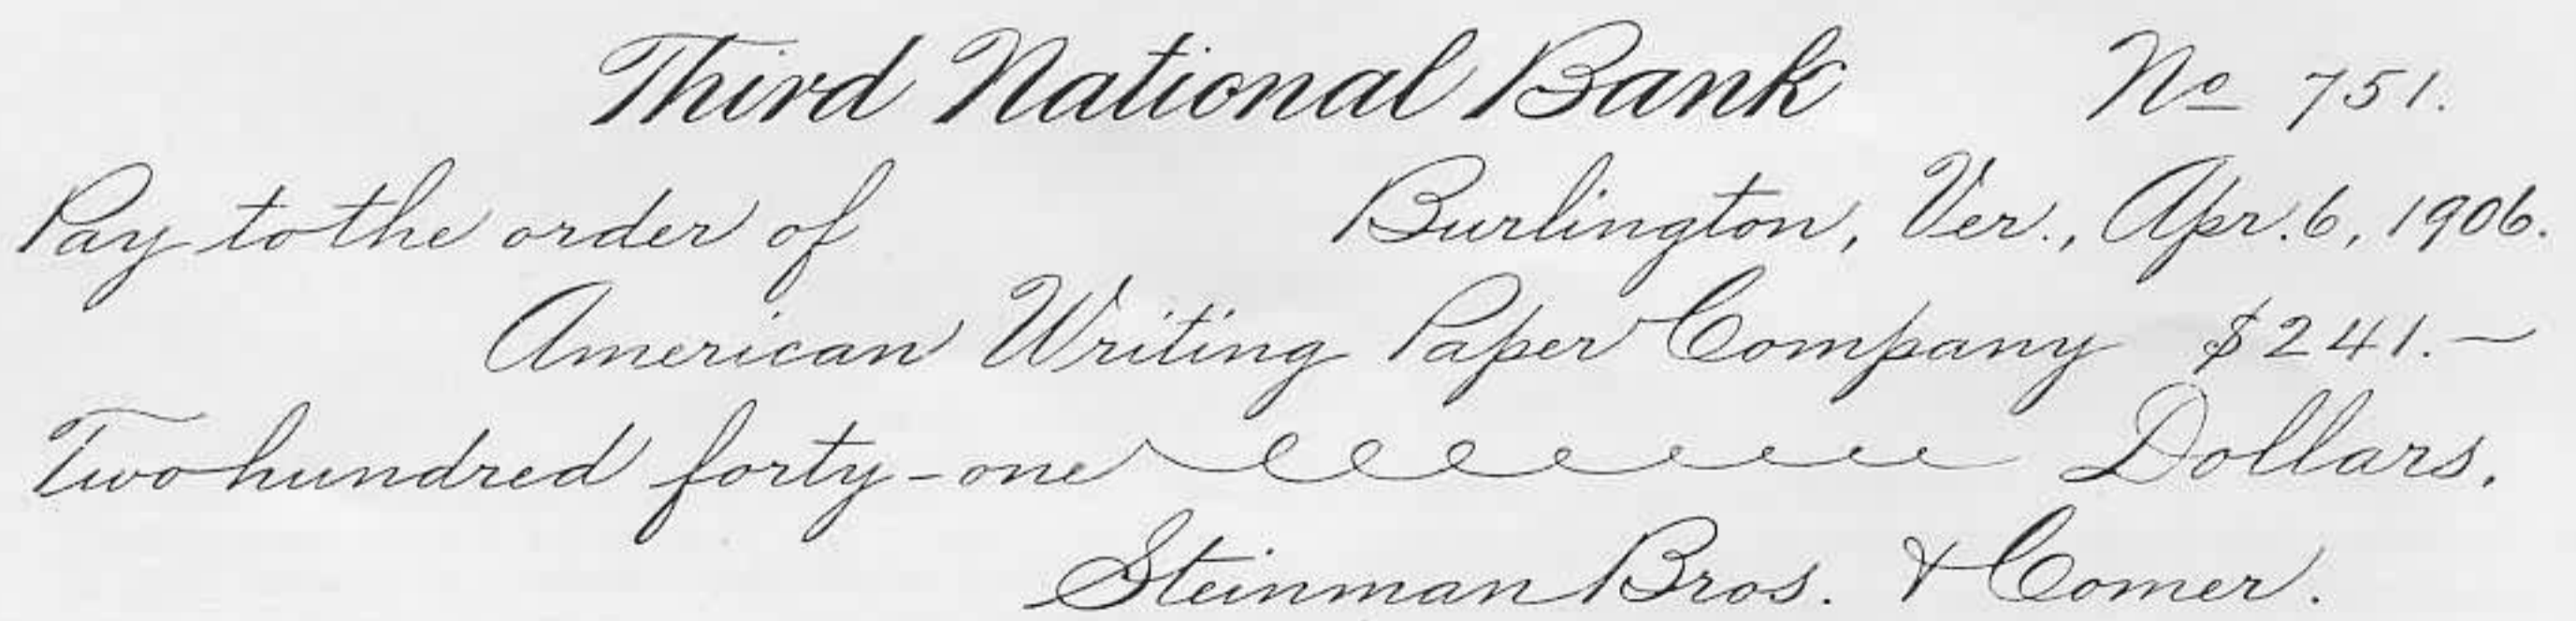 Third National Bank No 751.
Pay to the order of Burlington, Ver., Apr. 6, 1906.
American Writing Paper Company $241.—
Two hundred forty-one Dollars.
Steinman Bros. & Comer.